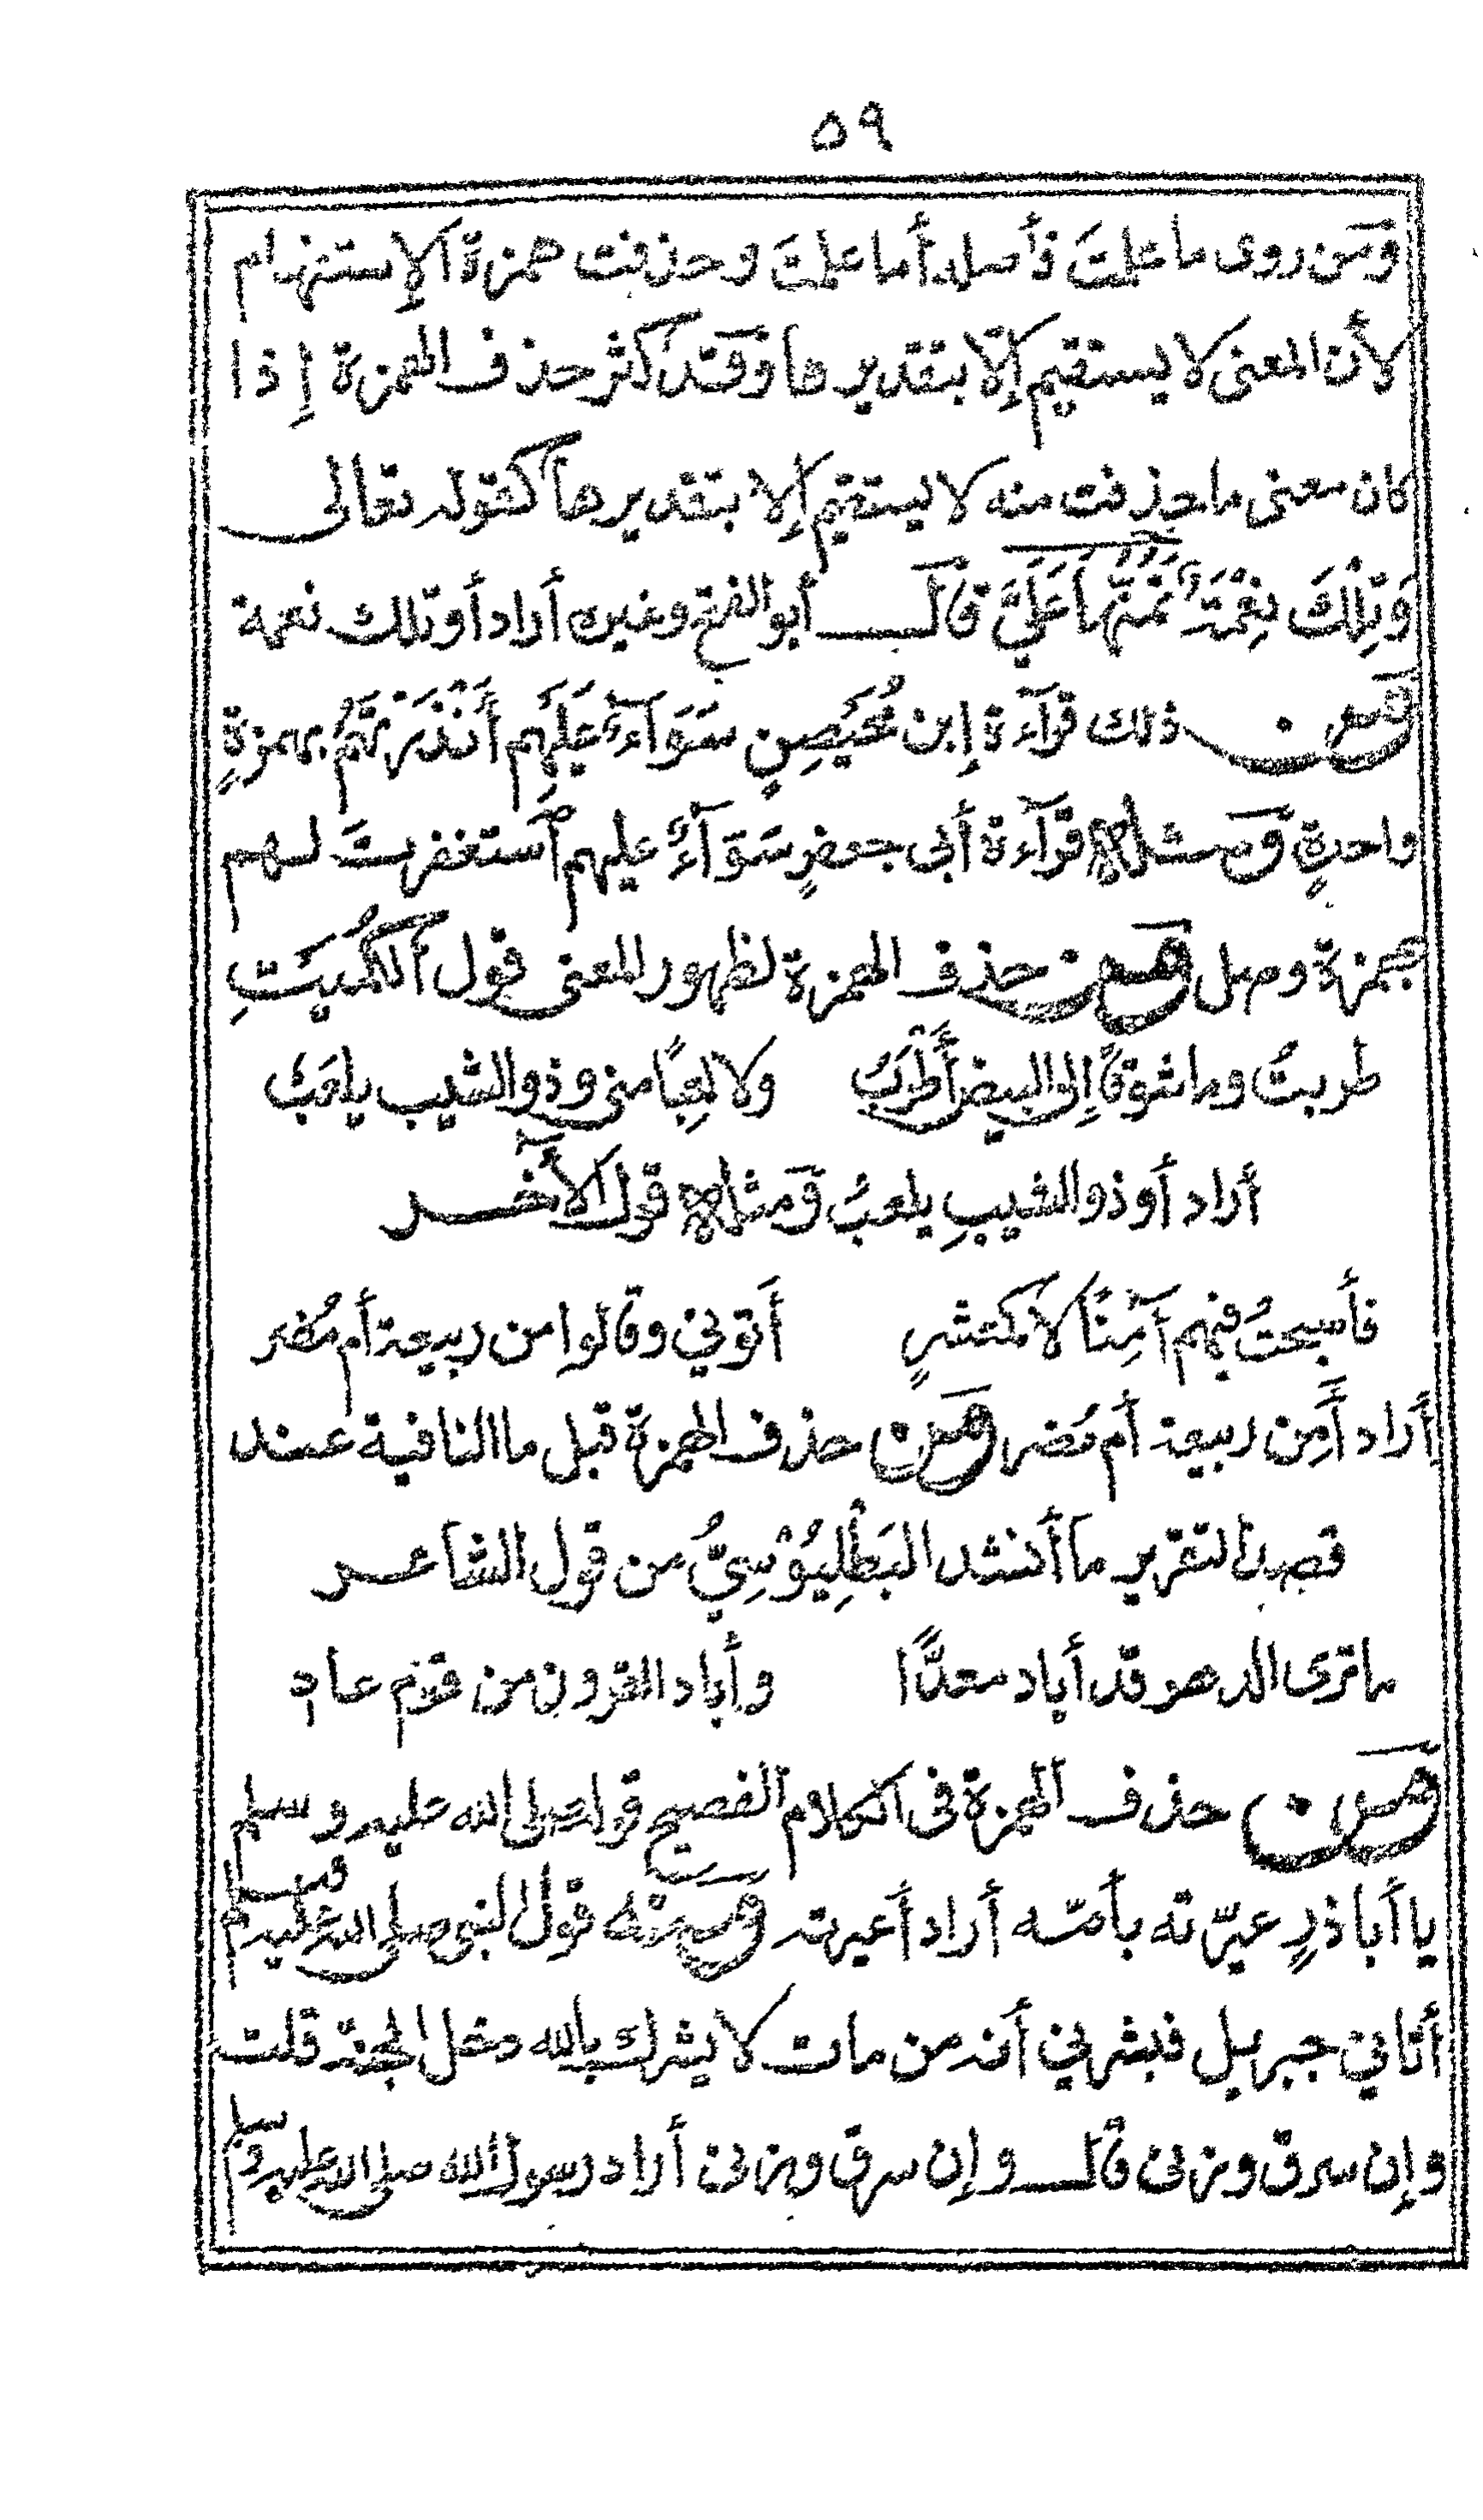 ٥٩
وَمَن روى ما علمتَ فأصله أما علمتَ وحذفت همزة الإستفهام
لأن المعنى لا يستقيم إلّا بتقديرها وَقَد كثر حذف الهمزة إذا
كان معنى ما حذفت منه لا يستقيم إلا بتقديرها كقوله تعالى
وَتِلْكَ نِعْمَةٌ تَمُنُّهَا عَلَيَّ قال أبو الفتح وغيره أراد أو تلك نعمة
وَمن ذلك قرآءة إبن مُحَيْصِنٍ سَوَآءٌ عَلَيْهِم أَنْذَرْتَهُمُ بهمزةٍ
واحدةٍ وَمثله قرآءة أبى جعفرٍ سَوَآءٌ عليهم ٱستغفرتَ لهم
بهمزة وصل وَمن حذف الهمزة لظهور المعنى قول الكُمَيْتِ
طربتُ وما شوقًا إلى البيض أَطْرَبُ ولا لعبًا منى وذو الشيب يلعَبُ
أراد أو ذو الشيبِ يلعبُ وَمثله قول الآخر
فأصبحتُ فيهم آمِنًا لا كمعشرٍ أَتوني وقالوا من ربيعة أم مُضر
أراد أَمِن ربيعة أم مُضر وَمن حذف الهمزة قبل ما النافية عند
قصد التقرير ما أنشد البَطَلْيُوْسِيُّ من قول الشاعر
ما ترى الدهر قد أباد معدًّا وأباد القرون من قوم عاد
وَمن حذف الهمزة فى الكلام الفصيح قوله صلى الله عليه وسلم
يا أبا ذرٍ عيرّته بأمّه أراد أعيرته وَمنه قول النبى صلى الله عليه وسلم
أتاني جبريل فبشرني أنه من مات لا يشرك بالله دخل الجنة قلت
وإن سرق وزنى قال وإن سرق وزنى أراد رسول الله صلى الله عليه وسلم